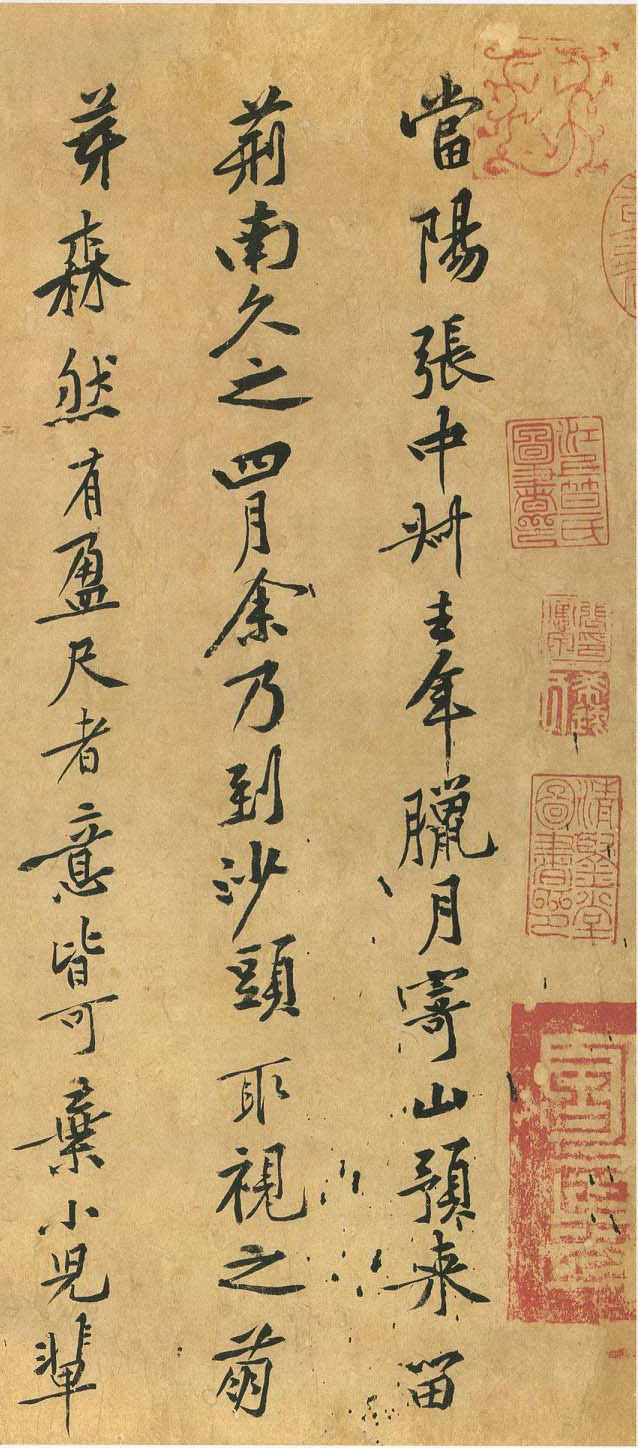 當陽張中叔去年臘月寄山預來留
荊南久之四月余乃到沙頭取視之萌
芽森然有盈尺者意皆可棄小兒輩